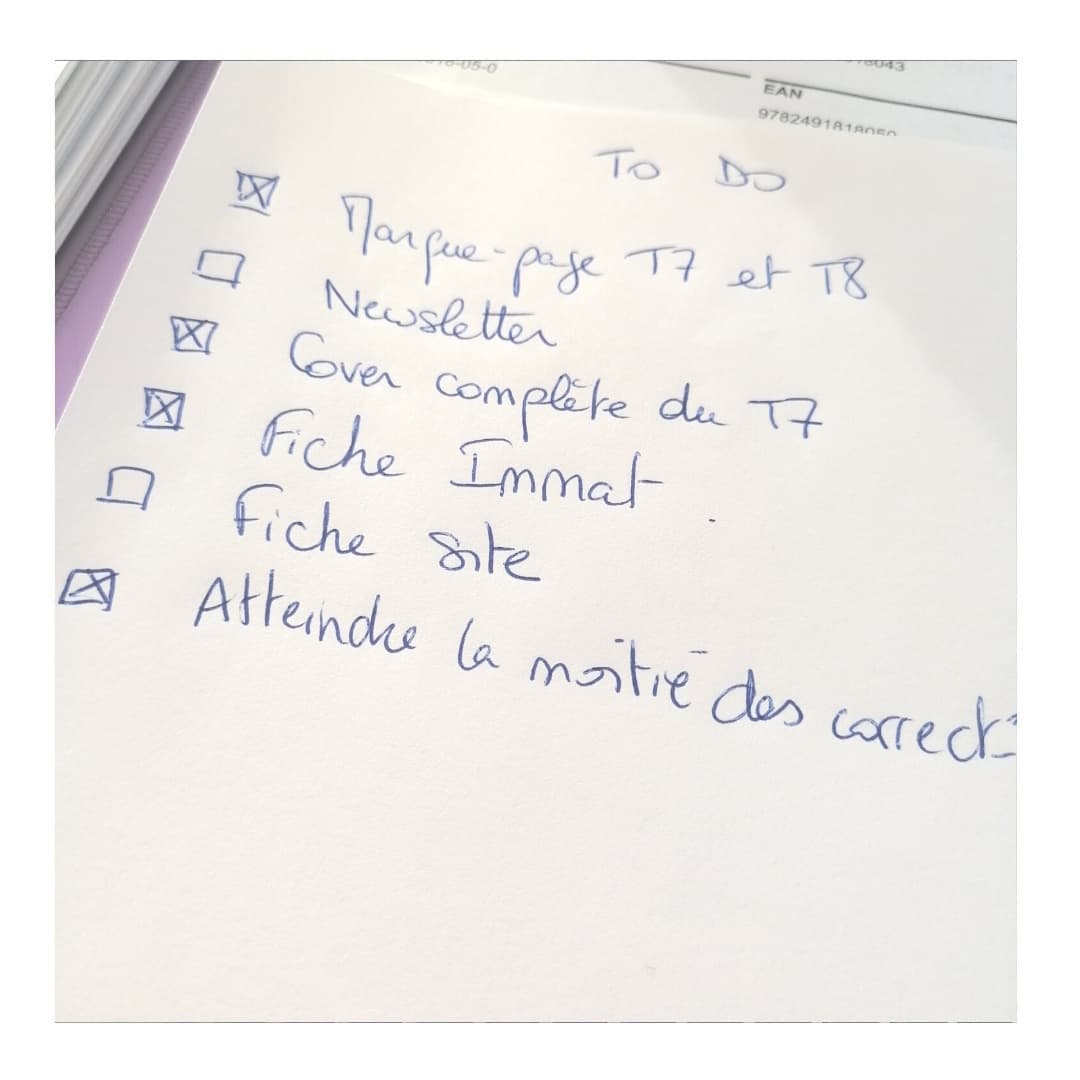 EAN
TO DO
Marque-page T7 et T8
Newsletter
Cover complète du T7
Fiche Immat.
Fiche site
Atteindre la moitié des correct°